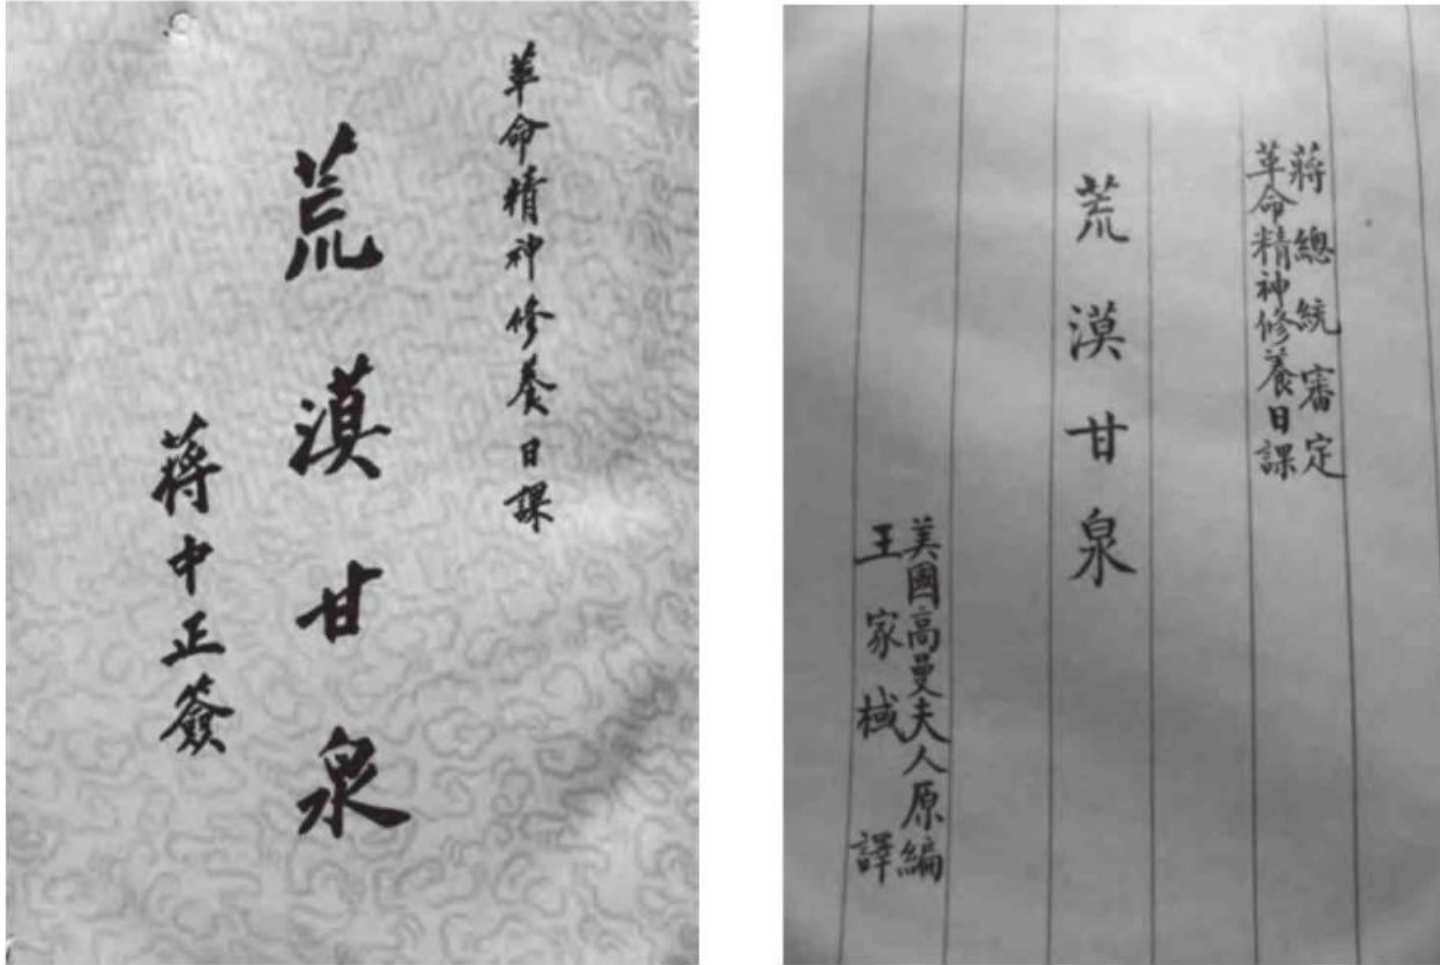 革命精神修養日課
荒漠甘泉
蔣中正簽
蔣總統審定
革命精神修養日課
荒漠甘泉
美國高曼夫人原編
王家棫譯